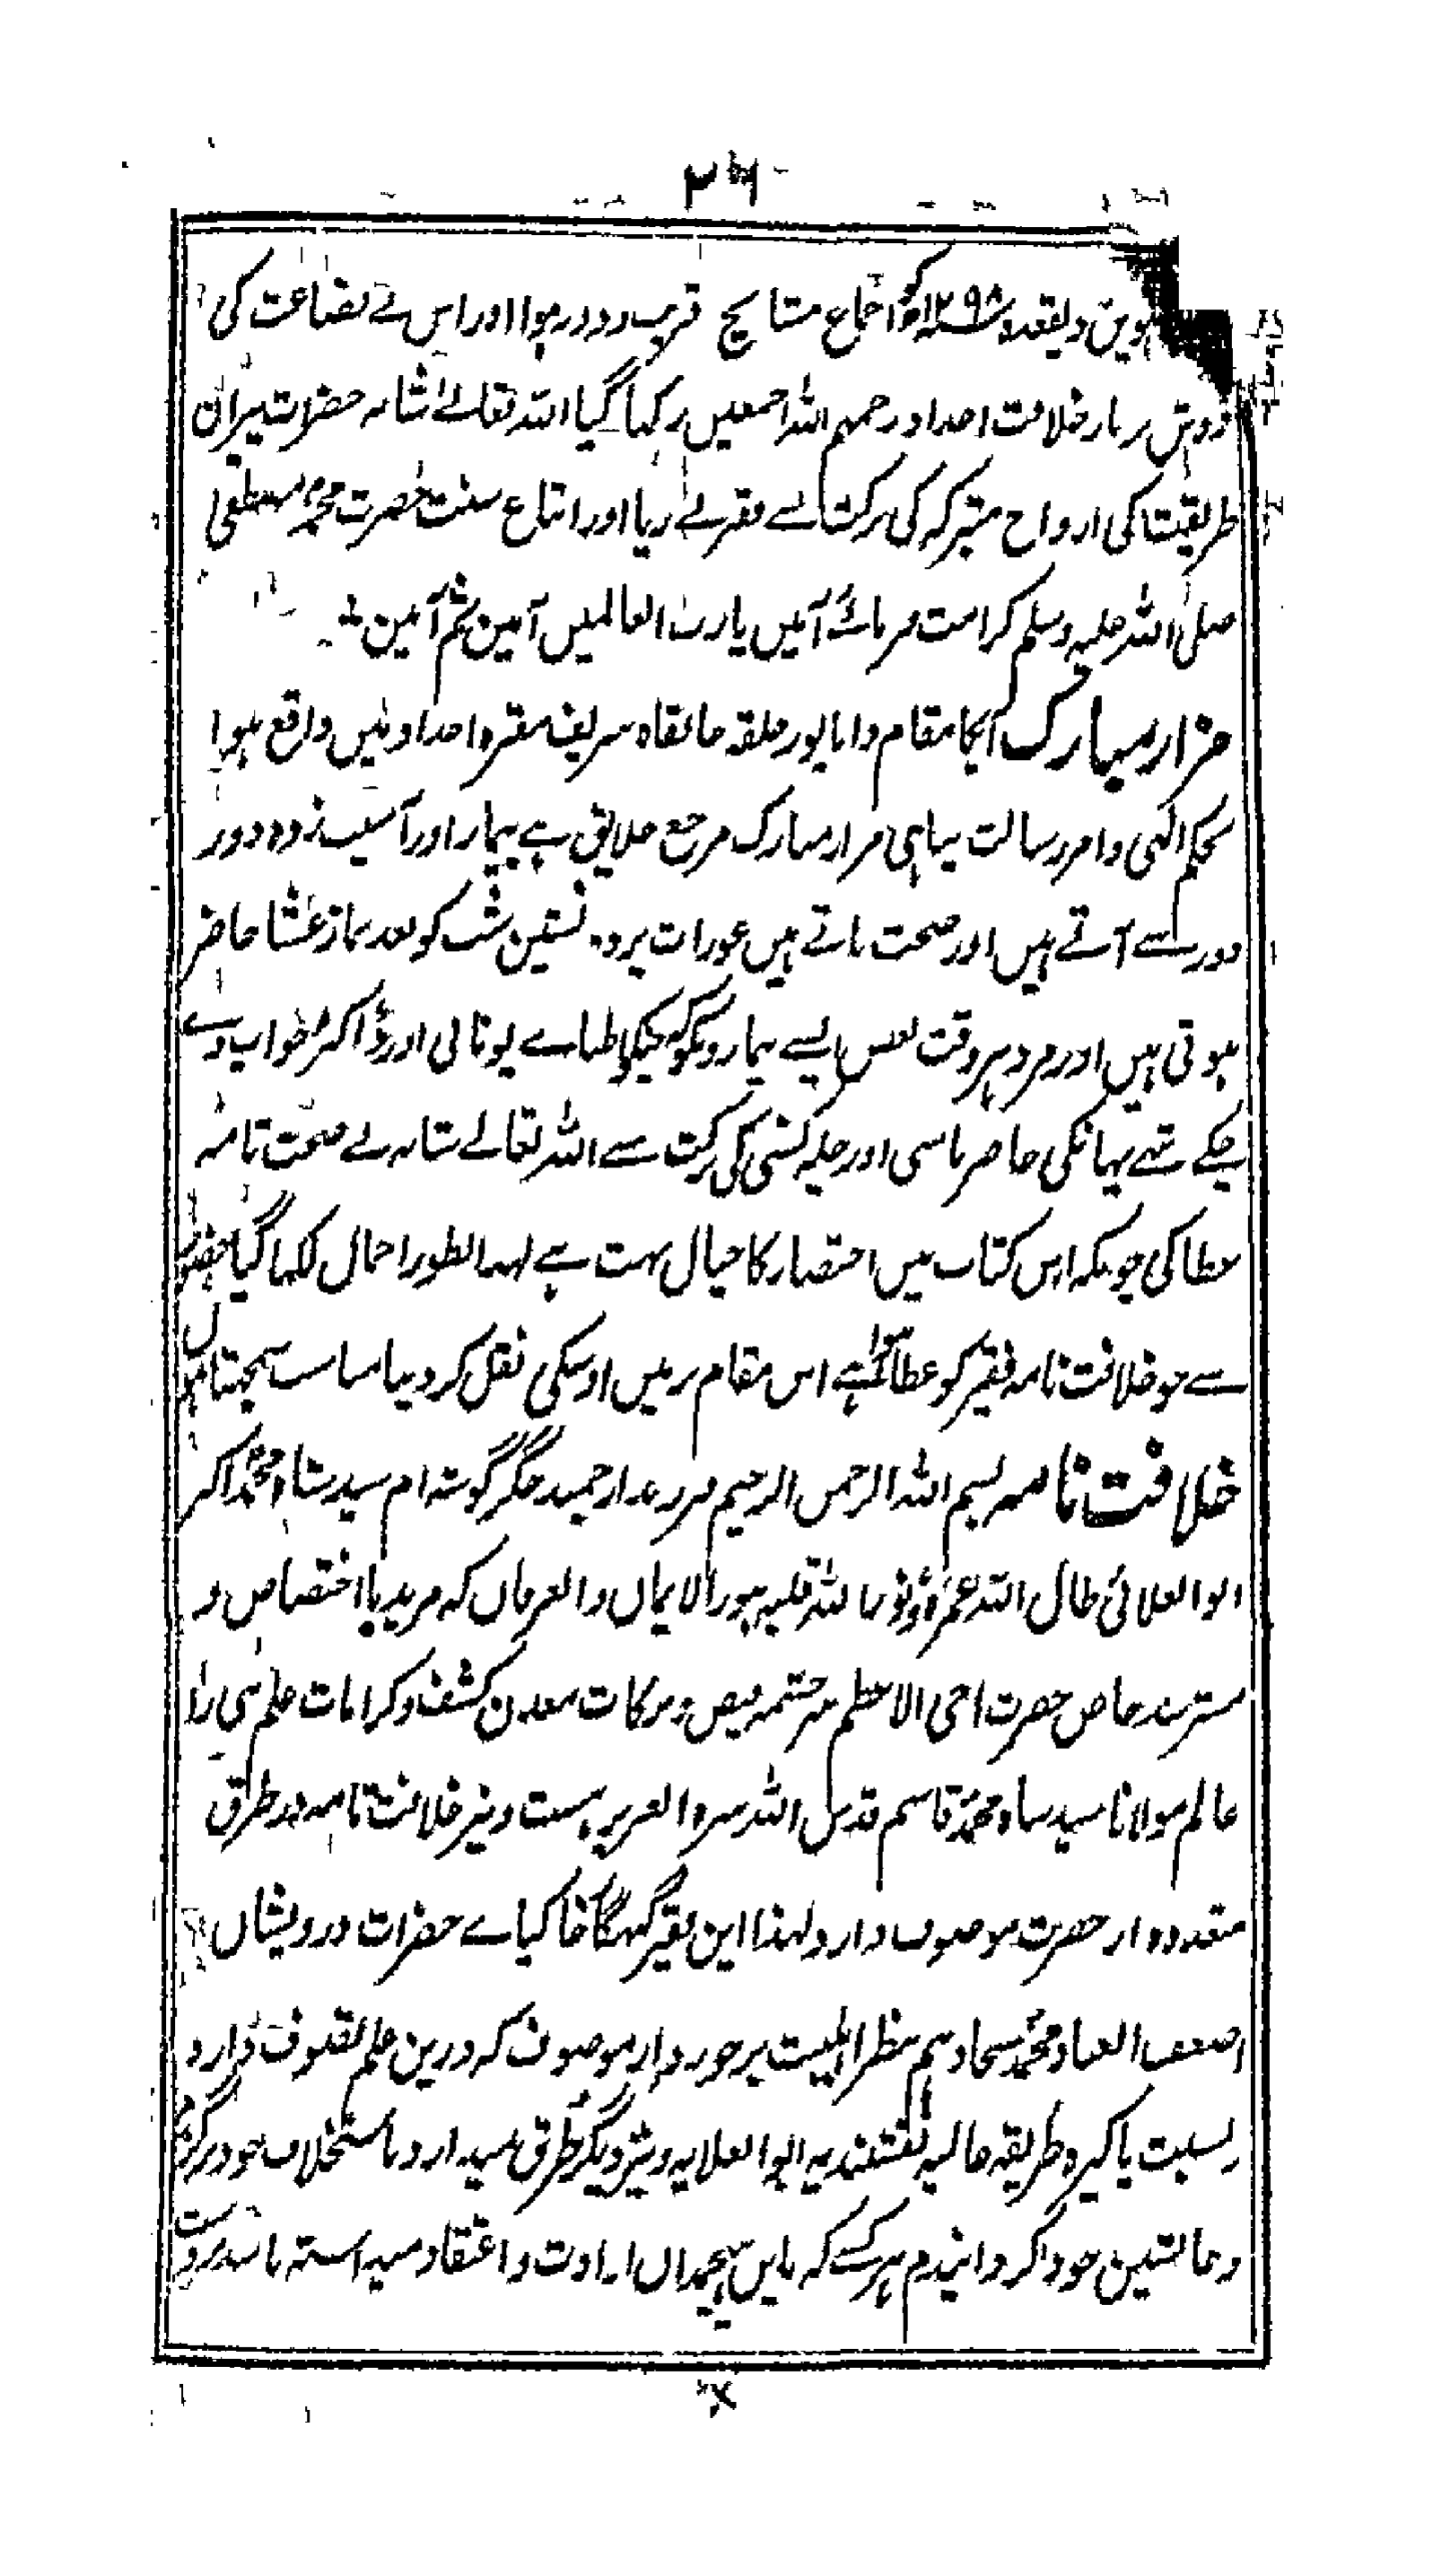 ۲۶
ہوین ذیقعدہ ۱۲۹۸ کو اجماع مشایخ قریب و دور ہوا اور اس بے بضاعت کی
دوش پر بار خلافت اجداد رحمہم اللہ اجمعین رکہا گیا اللہ تعالےٰ شانہ حضرات پیران
طریقت کی ارواح متبرکہ کی برکت سے مقرر اور اتباع سنت حضرت محمد مصطفی
صلی اللہ علیہ وسلم کرامت فرمائے آمین یا رب العالمین آمین ثم آمین
مزار مبارک آپکا مقام داناپور محلہ خانقاہ شریف مقبرہ اجداد میں واقع ہوا
بحکم الٰہی و امر رسالت پناہی مزار مبارک مرجع خلایق ہے بیمار اور آسیب زدہ دور
دور سے آتے ہیں اور صحت پاتے ہیں عورات پردہ نشین شب کو بعد نماز عشا حاضر
ہوتی ہیں اور مرد ہر وقت بعض ایسے بیمار ونکو کہ جنکو اطباے یونانی اور ڈاکٹر جواب دے
چکے تہے یہانکی حاضر باشی اور چلہ کشی کی برکت سے اللہ تعالےٰ شانہ نے صحت تامہ
عطا کی چونکہ اس کتاب میں اختصار کا خیال بہت ہے لہذا بطور اجمال لکہا گیا حضور
سے جو خلافت نامہ فقیر کو عطا ہوا ہے اس مقام پر میں اوسکی نقل کر دینا مناسب سمجہتا ہوں
خلافت نامہ بسم اللہ الرحمن الرحیم فرزند ارجمند جگر گوشہ ام سید شاہ محمد اکبر
ابو العلائی طال اللہ عمرہ و نور اللہ قلبہ بنور الایمان والعرفان کہ مرید با اختصاص و
مسترشد خاص حضرت اخی الاعظم سرچشمہ فیض و برکات معدن کشف و کرامات علم الہی را
عالم مولانا سید شاہ محمد قاسم قدس اللہ سرہ العزیز ہست و نیز خلافت نامہ در طرق
متعددہ از حضرت موصوف دارد لہذا این فقیر گنہگار خاکپاے حضرات درویشان
اضعف العباد محمد سجاد ہم بنظر اہلیت برخوردار موصوف کہ درین علم تصوف دارد
نسبت پاکیزہ طریقہ عالیہ نقشبندیہ ابو العلایہ و نیز دیگر طرق میدارد باستخلاف خود برگزیدم
و جانشین خود گردانیدم ہر کسے کہ باین ہیچمدان ارادت و اعتقاد میداشتہ باشد بر دست